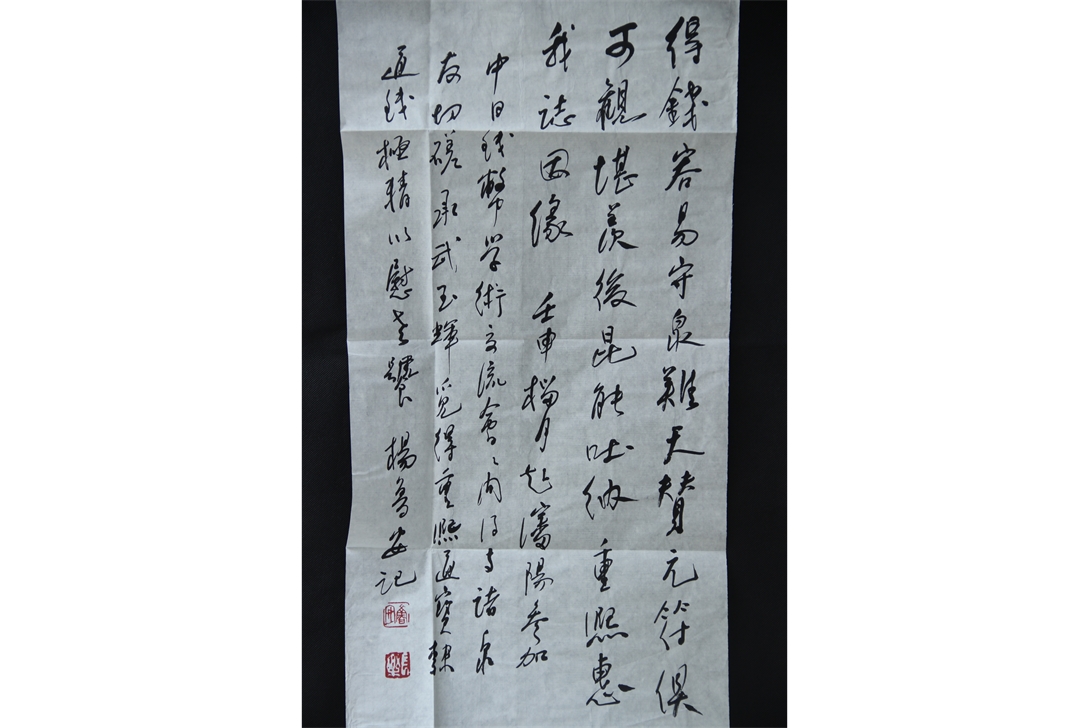 得錢容易守泉難天贊元符俱
可觀堪羨後昆能吐納重熙惠
我誌因緣 壬申榴月赴瀋陽參加
中日錢幣学術交流會々間得与諸泉
友切磋承武玉輝覓得重熙通寶
錢極精以慰老饕 楊魯安記